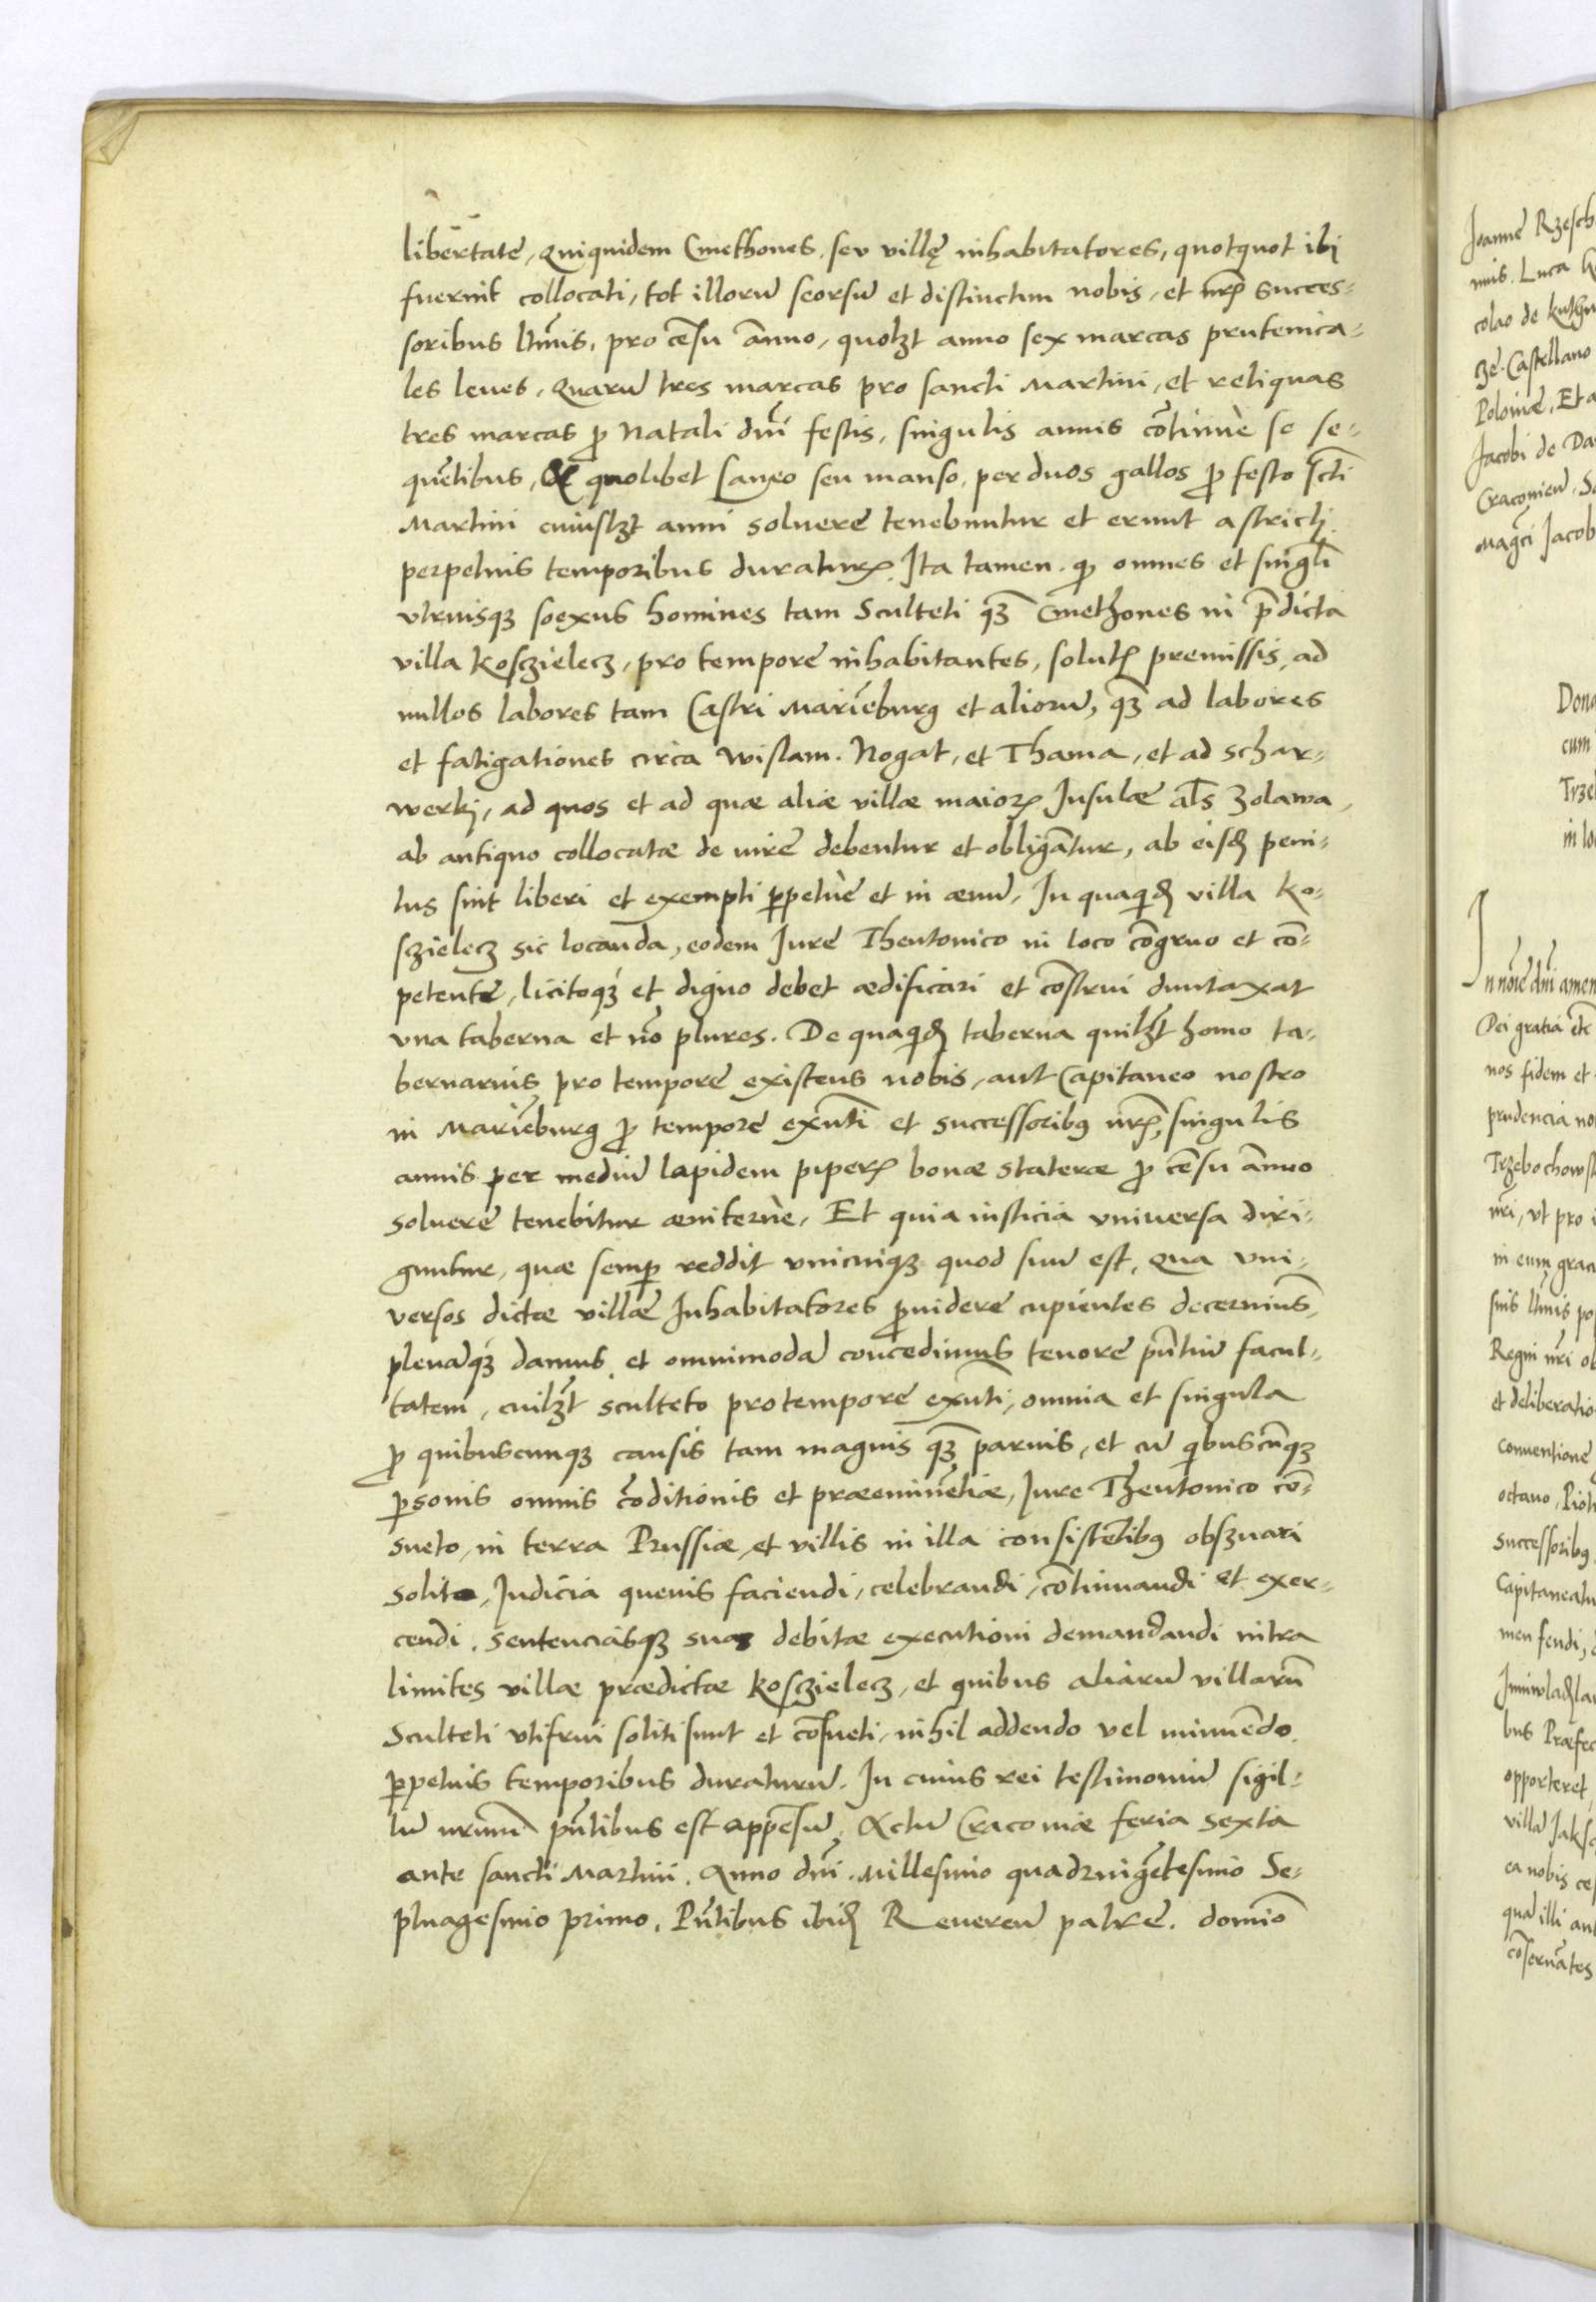 libertatē, Quiquidem Cmethones, seu villę inhabitatores, quotquot ibi
fuerint collocati, tot illorū seorsū et distinctim nobis, et nr̄is succes-
soribus ltīmis, pro cēsu ānuo, quolzt anno sex marcas prutenica-
les leues, Quarū tres marcas pro sancti Martini, et reliquas
tres marcas ꝓ Natali dnī festis, singulis annis cōtinuè se se-
quētibus, De quolibet Laneo seu manso, per duos gallos ꝓ festo sctī
Martini cuiuslzt anni soluere tenebuntur et erunt astricti
perpetuis temporibus duraturꝝ. Ita tamen. qꝫ omnes et singli
vtriusqꝫ soexus homines tam Sculteti qꝫ̄ Cmethones in p̄dicta
villa Kosczielecz, pro tempore inhabitantes, solutꝭ premissis, ad
nullos labores tam Castri Mariēburg et aliorū, qꝫ̄ ad labores
et fatigationes circa Wislam. Nogat, et Thama, et ad schar-
werkj, ad quos et ad quæ aliæ villæ maiorꝭ Insulæ als̄ Zolawa,
ab antiquo collocatæ de iure debentur et obligātur, ab eisd̄ peni-
tus sint liberi et exempti ꝑpetuè et in æuū, In quaqid̄ villa Ko-
sczielecz sic locanda, eodem Jure Theutonico in loco cōgruo et cō-
petente, licitoqꝫ et digno debet ædificari et cōstrui duntaxat
vna taberna et nō plures. De quaqid̄ taberna quilzt homo ta-
bernarius pro tempore existens nobis, aut Capitaneo nostro
in Mariēburg ꝓ tempore exn̄ti et successoribꝯ nr̄is, singulis
annis per mediū lapidem piperꝭ bonæ stateræ ꝓ cēsu ānuo
soluere tenebitur æuiternè, Et quia iusticia vniuersa diri-
guntur, quæ semꝑ reddit vnicuiqꝫ quod suū est, Qua vni-
versos dictæ villæ Inhabitatores ꝓuidere cupientes decernimꝯ,
plenāqꝫ damus, et omnimodā concedimus tenore pn̄tiū facul-
tatem, cuilzt sculteto pro tempore exn̄ti, omnia et singula
ꝓ quibuscunqꝫ causis tam magnis qꝫ̄ paruis, et cū qibuscūqꝫ
ꝑsonis omnis cōditionis et præeminētiæ, Jure Theutonico cō-
sueto, in terra Prussiæ, et villis in illa consistētibꝯ obsꝫuari
solito, Judicia queuis faciendi, celebrandi, cōtinuandi et exer-
cendi. Sentenciasqꝫ suas debitæ executioni demandandi intra
limites villæ prædictæ Kosczielecz, et quibus aliarū villarū
Sculteti vtifrui soliti sunt et cōsueti, nihil addendo vel minuēdo.
ꝑpetuis temporibus duraturū. In cuius rei testimoniū sigil-
lū nrūm pn̄tibus est appēsū. Actū Cracoviæ feria sexta
ante sancti Martini. Anno dnī. Millesimo quadringētesimo Se-
ptuagesimo primo. Pn̄tibus ibid̄ Reueren̄ patrē. dominō
Joannē Rzesch
mis. Luca
colao de Kuthn
zē. Castellano
Poloniæ, Et a
Jacobi de Da
Cracovien̄. S
Magcī Jacob
Dona
cum
Trze
in lo
In nōiē dnī amen
Dei gratia etc
nos fidem et
prudencia no
Trzebochowsk
nrī, vt pro
in eum grac
suis ltīmis po
Regni nrī ob
et deliberatio
Conuentione
octauo, Piotr
Successoribꝯ
Capitaneatu
men feudi,
Juniwladisla
bus Præfec
opporteret
villā Jaks
ea nobis ce
quā illi an
cōseruātes